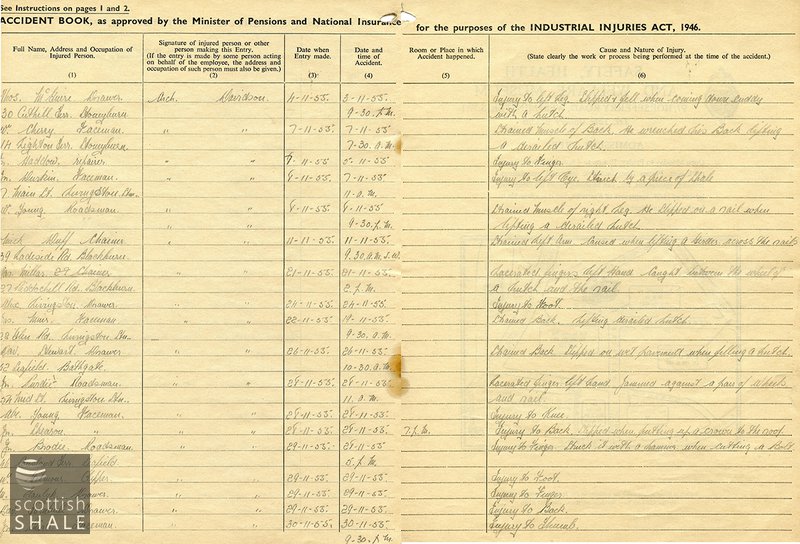 See Instructions on pages 1 and 2.
ACCIDENT BOOK, as approved by the Minister of Pensions and National Insurance for the purposes of the INDUSTRIAL INJURIES ACT, 1946.
Full Name, Address and Occupation of Injured Person.
(1)
Signature of injured person or other person making this Entry.
(If the entry is made by some person acting on behalf of the employee, the address and occupation of such person must also be given.)
(2)
Date when Entry made.
(3)
Date and time of Accident.
(4)
Room or Place in which Accident happened.
(5)
Cause and Nature of Injury.
(State clearly the work or process being performed at the time of the accident.)
(6)
McGuire Drawer Arch. Davidson 4-11-55 3-11-55 Injury to left leg. Slipped & fell when coming down
30 Cuthill Terr. Stoneyburn 9-30. p.m. with a hutch
Cherry Faceman " " 7-11-55 7-11-55 Strained muscle of Back. He wrenched his Back lifting
14 Leighton Terr. Stoneyburn 7-30. a.m. a derailed hutch.
Haddow, repairer " " -11-55 5-11-55 Injury to Finger.
Jn. Durkin. Faceman. " " -11-55 7-11-55 Injury to left Eye. Struck by a piece of Shale
7 Main St. Livingstone Stn. 11 a.m.
Young Roadsman. " " -11-55 -11-55 Strained muscle of right leg. He slipped on a rail when
9-30. p.m. lifting a derailed hutch.
Duff Chainer " " 11-11-55 11-11-55 Strained left arm. Caused when lifting a across the rails
39 Ladeside Rd. Blackburn 9.30 a.m.
Miller 89 Chainer " " 21-11-55 21-11-55 Lacerated fingers left hand caught between the wheel of
27 Riddochill Rd. Blackburn 2. p.m. a hutch and the rail.
Alex Livingston. Drawer " " 24-11-55 24-11-55 Injury to Foot.
Muir. Faceman " " 22-11-55 19-11-55 Strained Back. Lifting derailed hutch.
Rd. Livingston Stn. 9-30. a.m.
Stewart. Drawer " " 26-11-55 26-11-55 Strained Back. Slipped on wet pavement when filling a hutch.
Bathgate. 10-30 a.m.
Jn. Purdie Roadsman. " " 28-11-55 28-11-55 Lacerated finger left hand jammed against a pair of wheels
54 Mid St. Livingstone Stn. 11. a.m. and rail.
Young, Faceman. " " 28-11-55 28-11-55 Injury to Knee.
Jn. " " 28-11-55 28-11-55 7. p.m. Injury to Back. Slipped when putting up a crown to the roof
Jn. Brodie. Roadsman. " " 29-11-55 28-11-55 Injury to Finger. Struck it with a hammer when cutting a Bolt.
Terr. 5. p.m.
" " 29-11-55 29-11-55 Injury to Foot.
Drawer " " 29-11-55 29-11-55 Injury to Finger.
Drawer " " 29-11-55 29-11-55 Injury to Back.
Faceman. " " 30-11-55 30-11-55 Injury to Thumb.
9-30. p.m.
scottish
SHALE